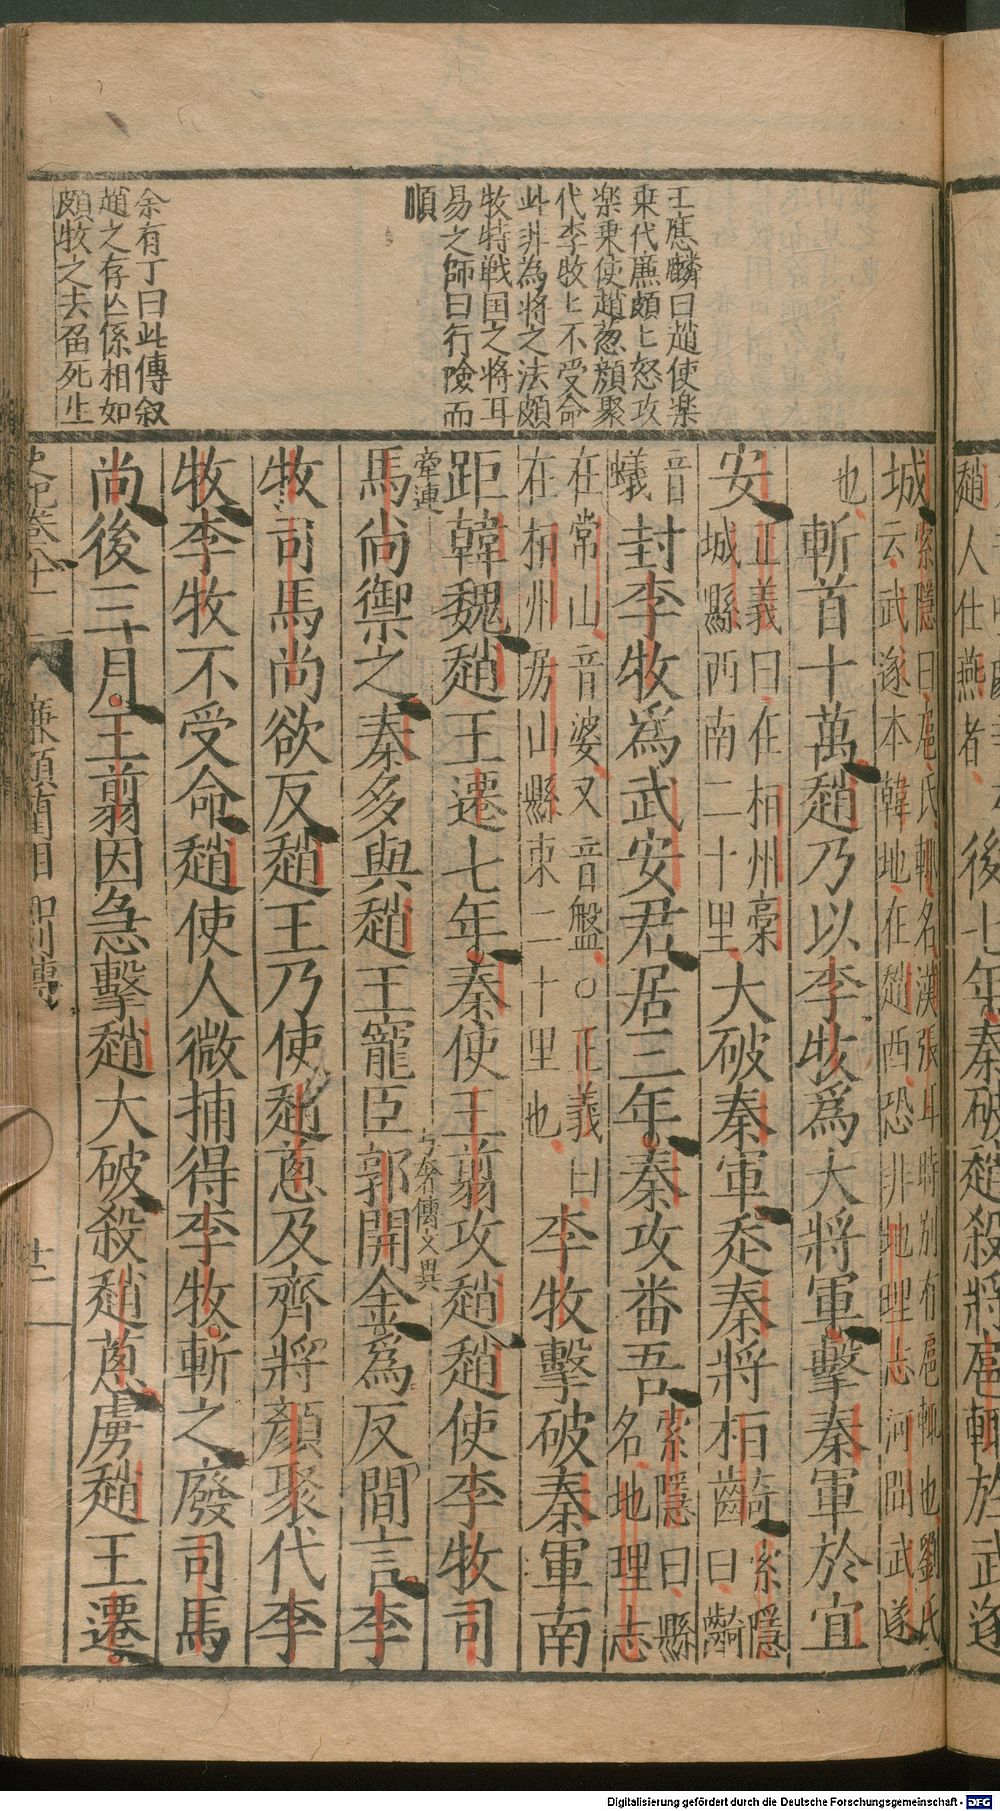 王應麟曰趙使楽
乘代廉頗〻怒攻
楽乗使趙葱顔聚
代李牧〻不受命
此非為将之法頗
牧特戦国之将耳
易之師曰行險而
順
余有丁曰此傳叙
趙之存亾係相如
頗牧之去畱死生
趙人仕燕者
後七年秦破趙殺將扈輒於武遂
城
索隱曰扈氏輒名漢張耳時别有扈輒也劉氏
云武遂本韓地在趙西恐非地理志河間武遂
也
斬首十萬趙乃以李牧爲大將軍擊秦軍於宜
安
正義曰在相州稾
城縣西南二十里
大破秦軍走秦將栢齮
索隱
曰齮
音
蟻
封李牧爲武安君居三年秦攻番吾
索隱曰縣
名地理志
在常山音婆又音盤○正義曰
在相州房山縣東二十里也
李牧擊破秦軍南
距韓魏趙王遷七年秦使王翦攻趙趙使李牧司
馬尚禦之秦多與趙王寵臣郭開金爲反間言李
牽連
与奢傳文異
牧司馬尚欲反趙王乃使趙蔥及齊將顔聚代李
牧李牧不受命趙使人微捕得李牧斬之廢司馬
尚後三月王翦因急擊趙大破殺趙蔥虜趙王遷
史記卷八十一
廉頗藺相如列傳
廿二
Digitalisierung gefördert durch die Deutsche Forschungsgemeinschaft - DFG